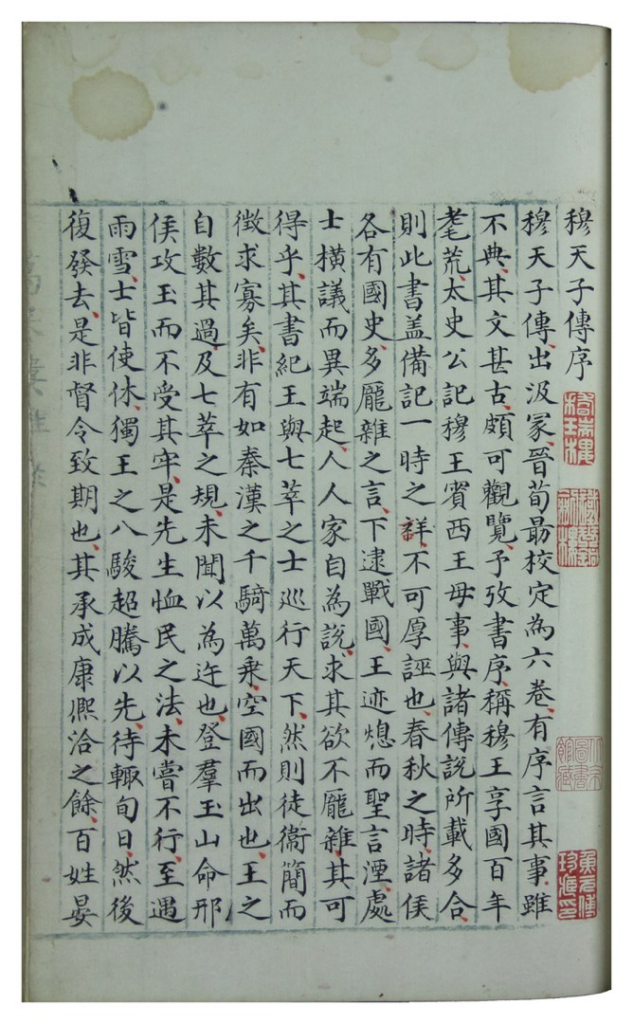 穆天子傳序
穆天子傳出汲冢晉荀勗校定為六卷有序言其事雖
不典其文甚古頗可觀覽予攷書序稱穆王享國百年
耄荒太史公記穆王賓西王母事與諸傳說所載多合
則此書盖備記一時之詳不可厚誣也春秋之時諸侯
各有國史多厖雜之言下逮戰國王迹熄而聖言湮處
士橫議而異端起人人家自為說求其欲不厖雜其可
得乎其書紀王與七萃之士巡行天下然則徒衛簡而
徵求寡矣非有如秦漢之千騎萬乘空國而出也王之
自數其過及七萃之規未聞以為迕也登羣玉山命邢
侯攻玉而不受其牢是先生恤民之法未嘗不行至遇
雨雪士皆使休獨王之八駿超騰以先待輙旬日然後
復發去是非督令致期也其承成康熈洽之餘百姓晏